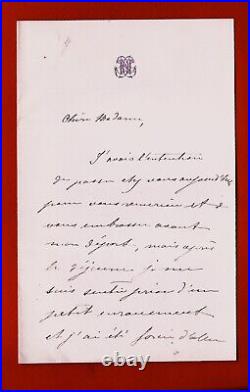 Chère Madame,
J'avais l'intention
de passer chez vous aujourd'hui
pour vous remercier et
vous embrasser avant
mon départ, mais après
le déjeuner je me
suis sentie prise d'un
petit enrouement
et j'ai été forcée d'aller